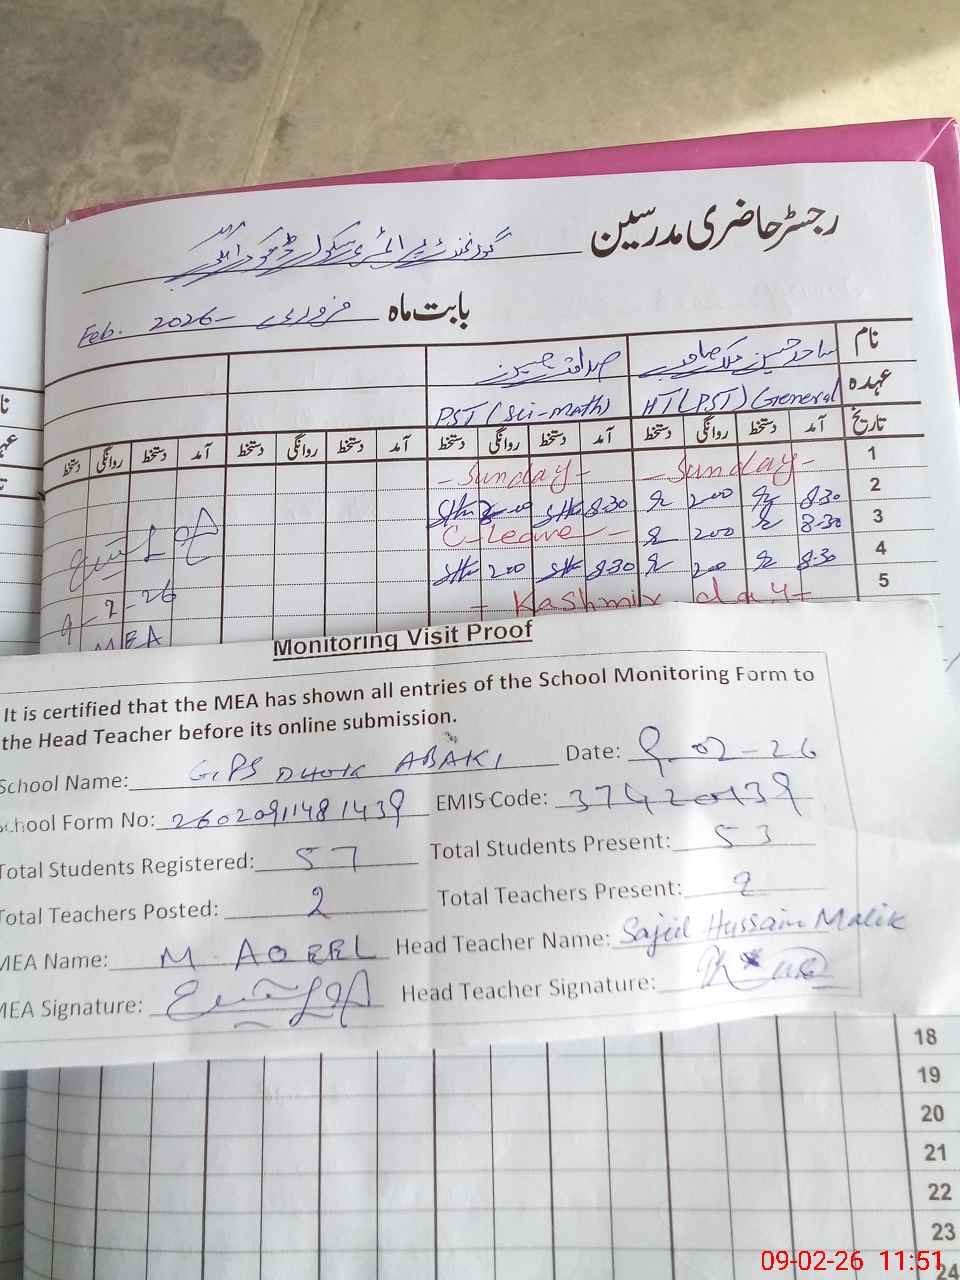 رجسٹر حاضری مدرسین گورنمنٹ پرائمری سکول ڈھوک
بابت ماہ فروری Feb. 2026
نام ساجد حسین ملک صاحب صداقت حسین
عہدہ HT(PST) General PST (Sci-math)
تاریخ آمد دستخط روانگی دستخط آمد دستخط روانگی دستخط آمد دستخط روانگی دستخط آمد دستخط روانگی دستخط
1 - Sunday - - Sunday -
2 8-30 200 8-30
3 8-30 200 C-leave -
4 8-30 200 8-30 200
5 - Kashmir day -
9-2-26
MEA
Monitoring Visit Proof
It is certified that the MEA has shown all entries of the School Monitoring Form to
the Head Teacher before its online submission.
School Name: GPS DHOK ABAKI Date: 9-02-26
School Form No: 26020911481439 EMIS Code: 37420439
Total Students Registered: 57 Total Students Present: 53
Total Teachers Posted: 2 Total Teachers Present: 2
MEA Name: M. AQEEL Head Teacher Name: Sajid Hussain Malik
MEA Signature: Head Teacher Signature:
18
19
20
21
22
23
24
09-02-26 11:51